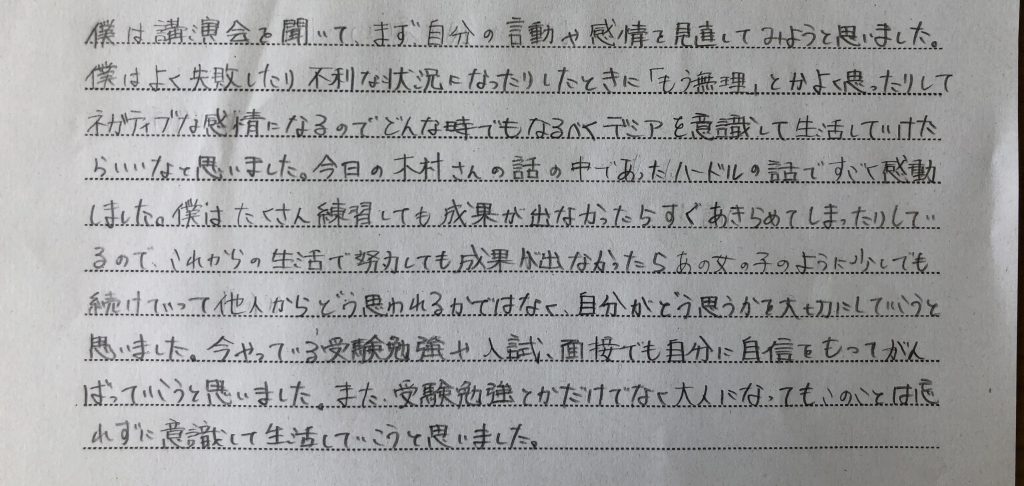 僕は講演会を聞いて、まず自分の言動や感情を見直してみようと思いました。
僕はよく失敗したり不利な状況になったりしたときに「もう無理」とかよく思ったりして
ネガティブな感情になるのでどんな時でもなるべくデミアを意識して生活していけた
らいいなと思いました。今日の木村さんの話の中であったハードルの話ですごく感動
しました。僕はたくさん練習しても成果が出なかったらすぐあきらめてしまったりしてい
るので、これからの生活で努力しても成果が出なかったらあの女の子のように少しでも
続けていって他人からどう思われるかではなく、自分がどう思うかを大切にしていこうと
思いました。今やっている受験勉強や入試、面接でも自分に自信をもってがん
ばっていこうと思いました。また、受験勉強とかだけでなく大人になってもこのことは忘
れずに意識して生活していこうと思いました。